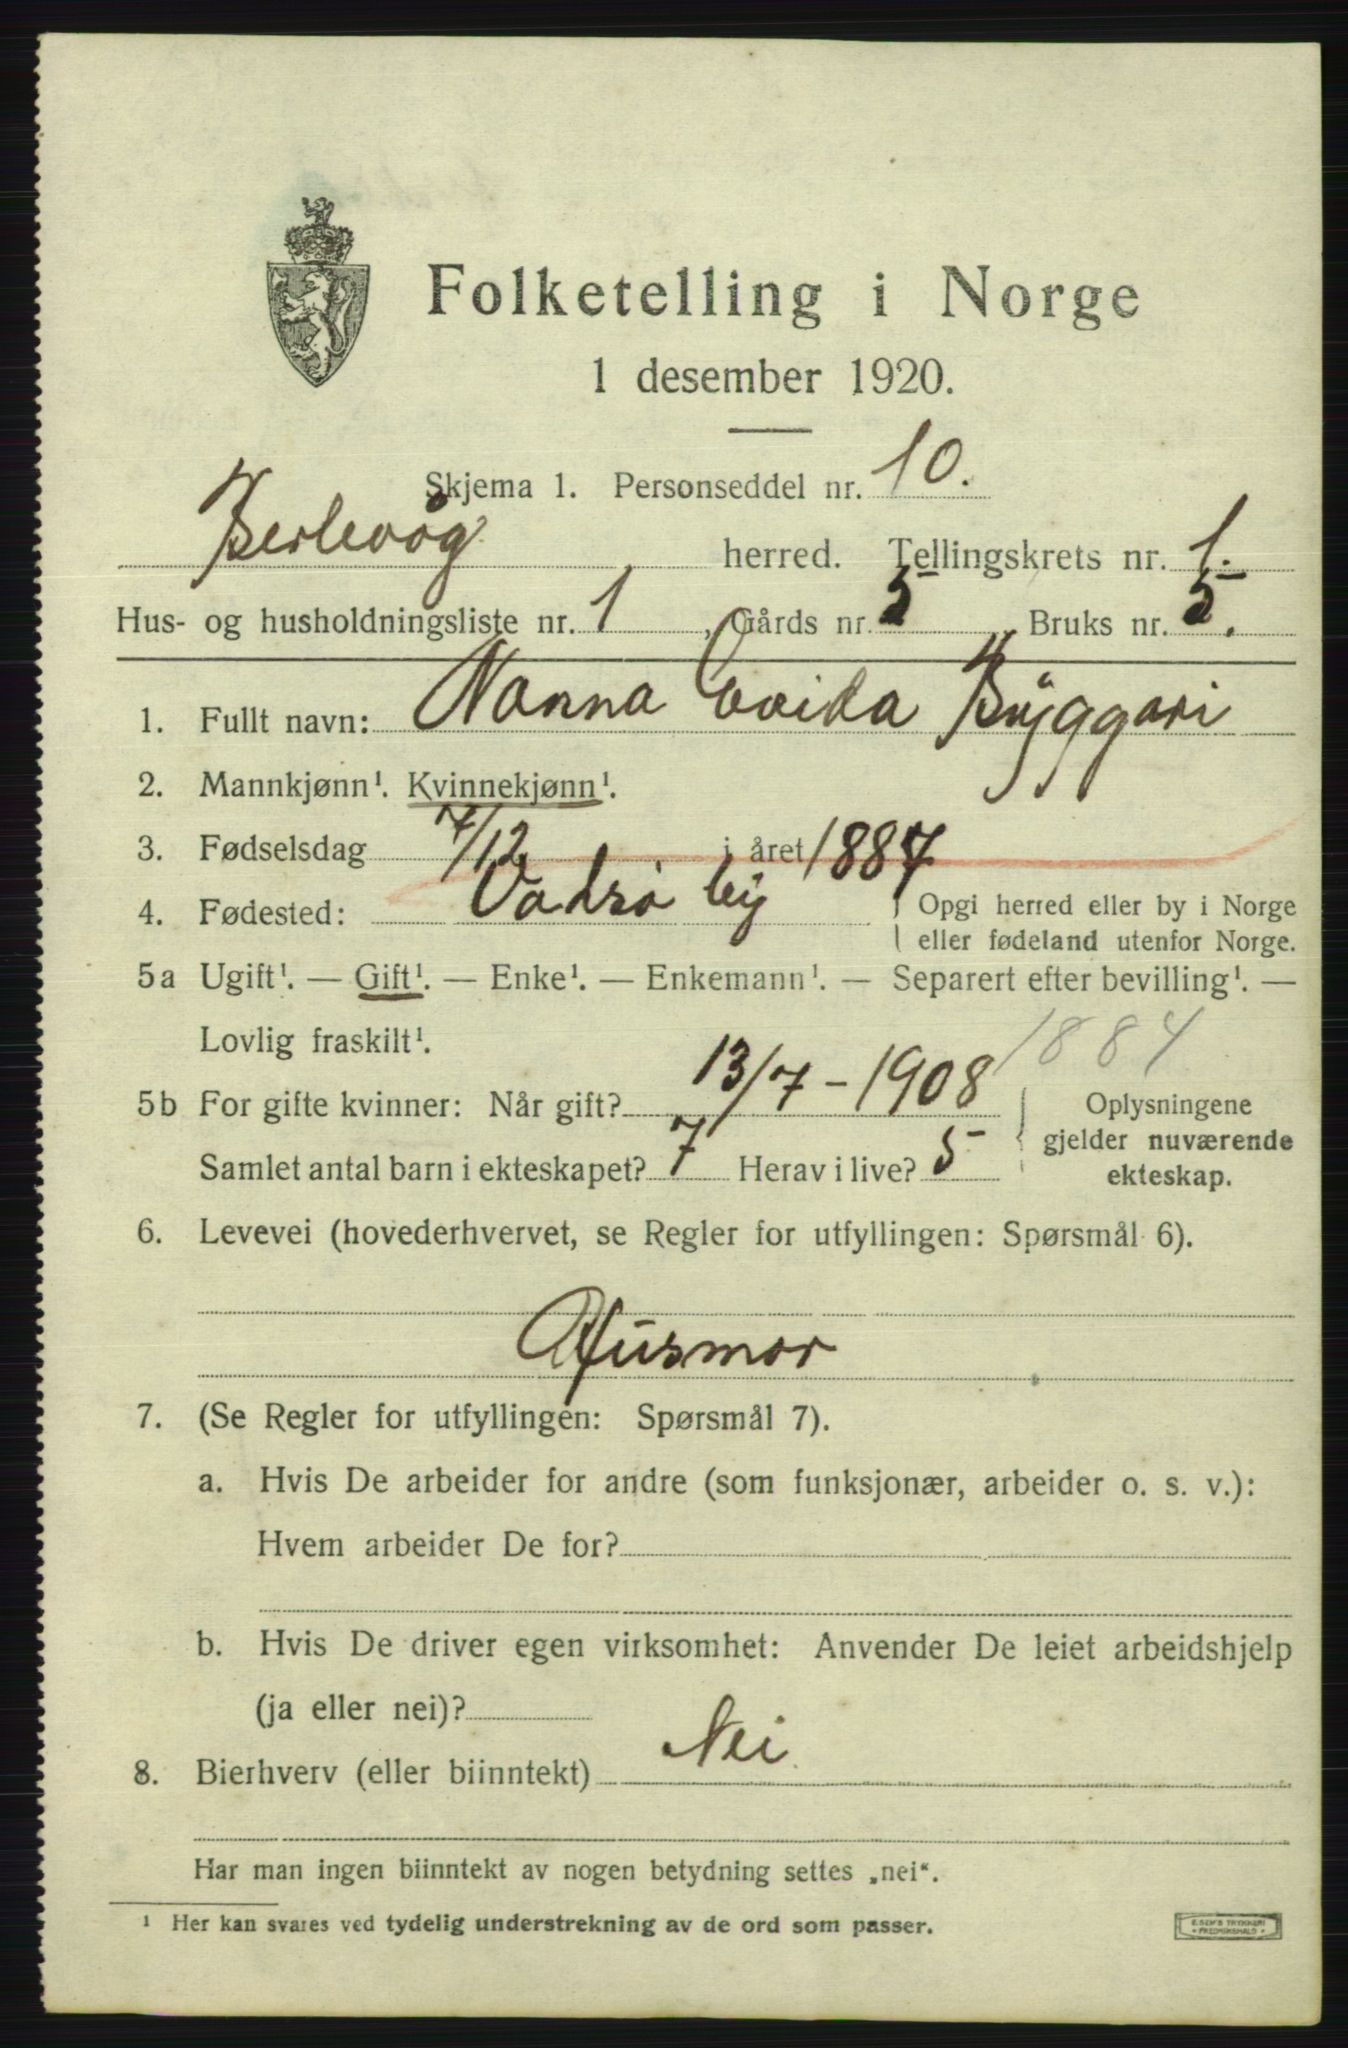 Folketelling i Norge
1 desember 1920.
Skjema 1. Personseddel nr. 10.
Berlevåg herred. Tellingskrets nr. 1.
Hus- og husholdningsliste nr. 1, Gårds nr. 5 Bruks nr. 5.
1. Fullt navn: Nanna Byggari
2. Mannkjønn¹. Kvinnekjønn¹.
3. Fødselsdag 7/12 i året 1887
4. Fødested: Vadsø by { Opgi herred eller by i Norge
eller fødeland utenfor Norge.
5a Ugift¹. — Gift¹. — Enke¹. — Enkemann¹. — Separert efter bevilling¹. —
Lovlig fraskilt¹.
1884
5b For gifte kvinner: Når gift? 13/7 - 1908 { Oplysningene
gjelder nuværende
Samlet antal barn i ekteskapet? 7 Herav i live? 5
ekteskap.
6. Levevei (hovederhvervet, se Regler for utfyllingen: Spørsmål 6).
Husmor
7. (Se Regler for utfyllingen: Spørsmål 7).
a. Hvis De arbeider for andre (som funksjonær, arbeider o. s. v.):
Hvem arbeider De for?
b. Hvis De driver egen virksomhet: Anvender De leiet arbeidshjelp
(ja eller nei)?
8. Bierhverv (eller biinntekt) Nei
Har man ingen biinntekt av nogen betydning settes „nei“.
¹ Her kan svares ved tydelig understrekning av de ord som passer.
E. SEM'S TRYKKERI
• FREDRIKSHALD •